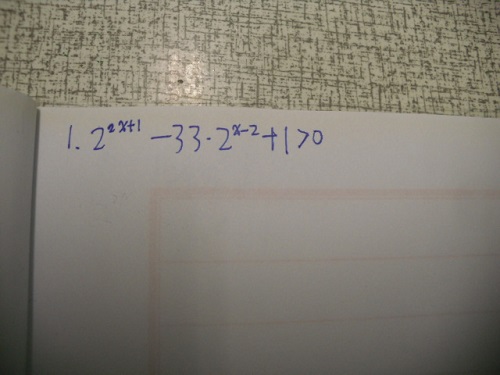 1. 2^{2x+1} -33·2^{x-2}+1>0